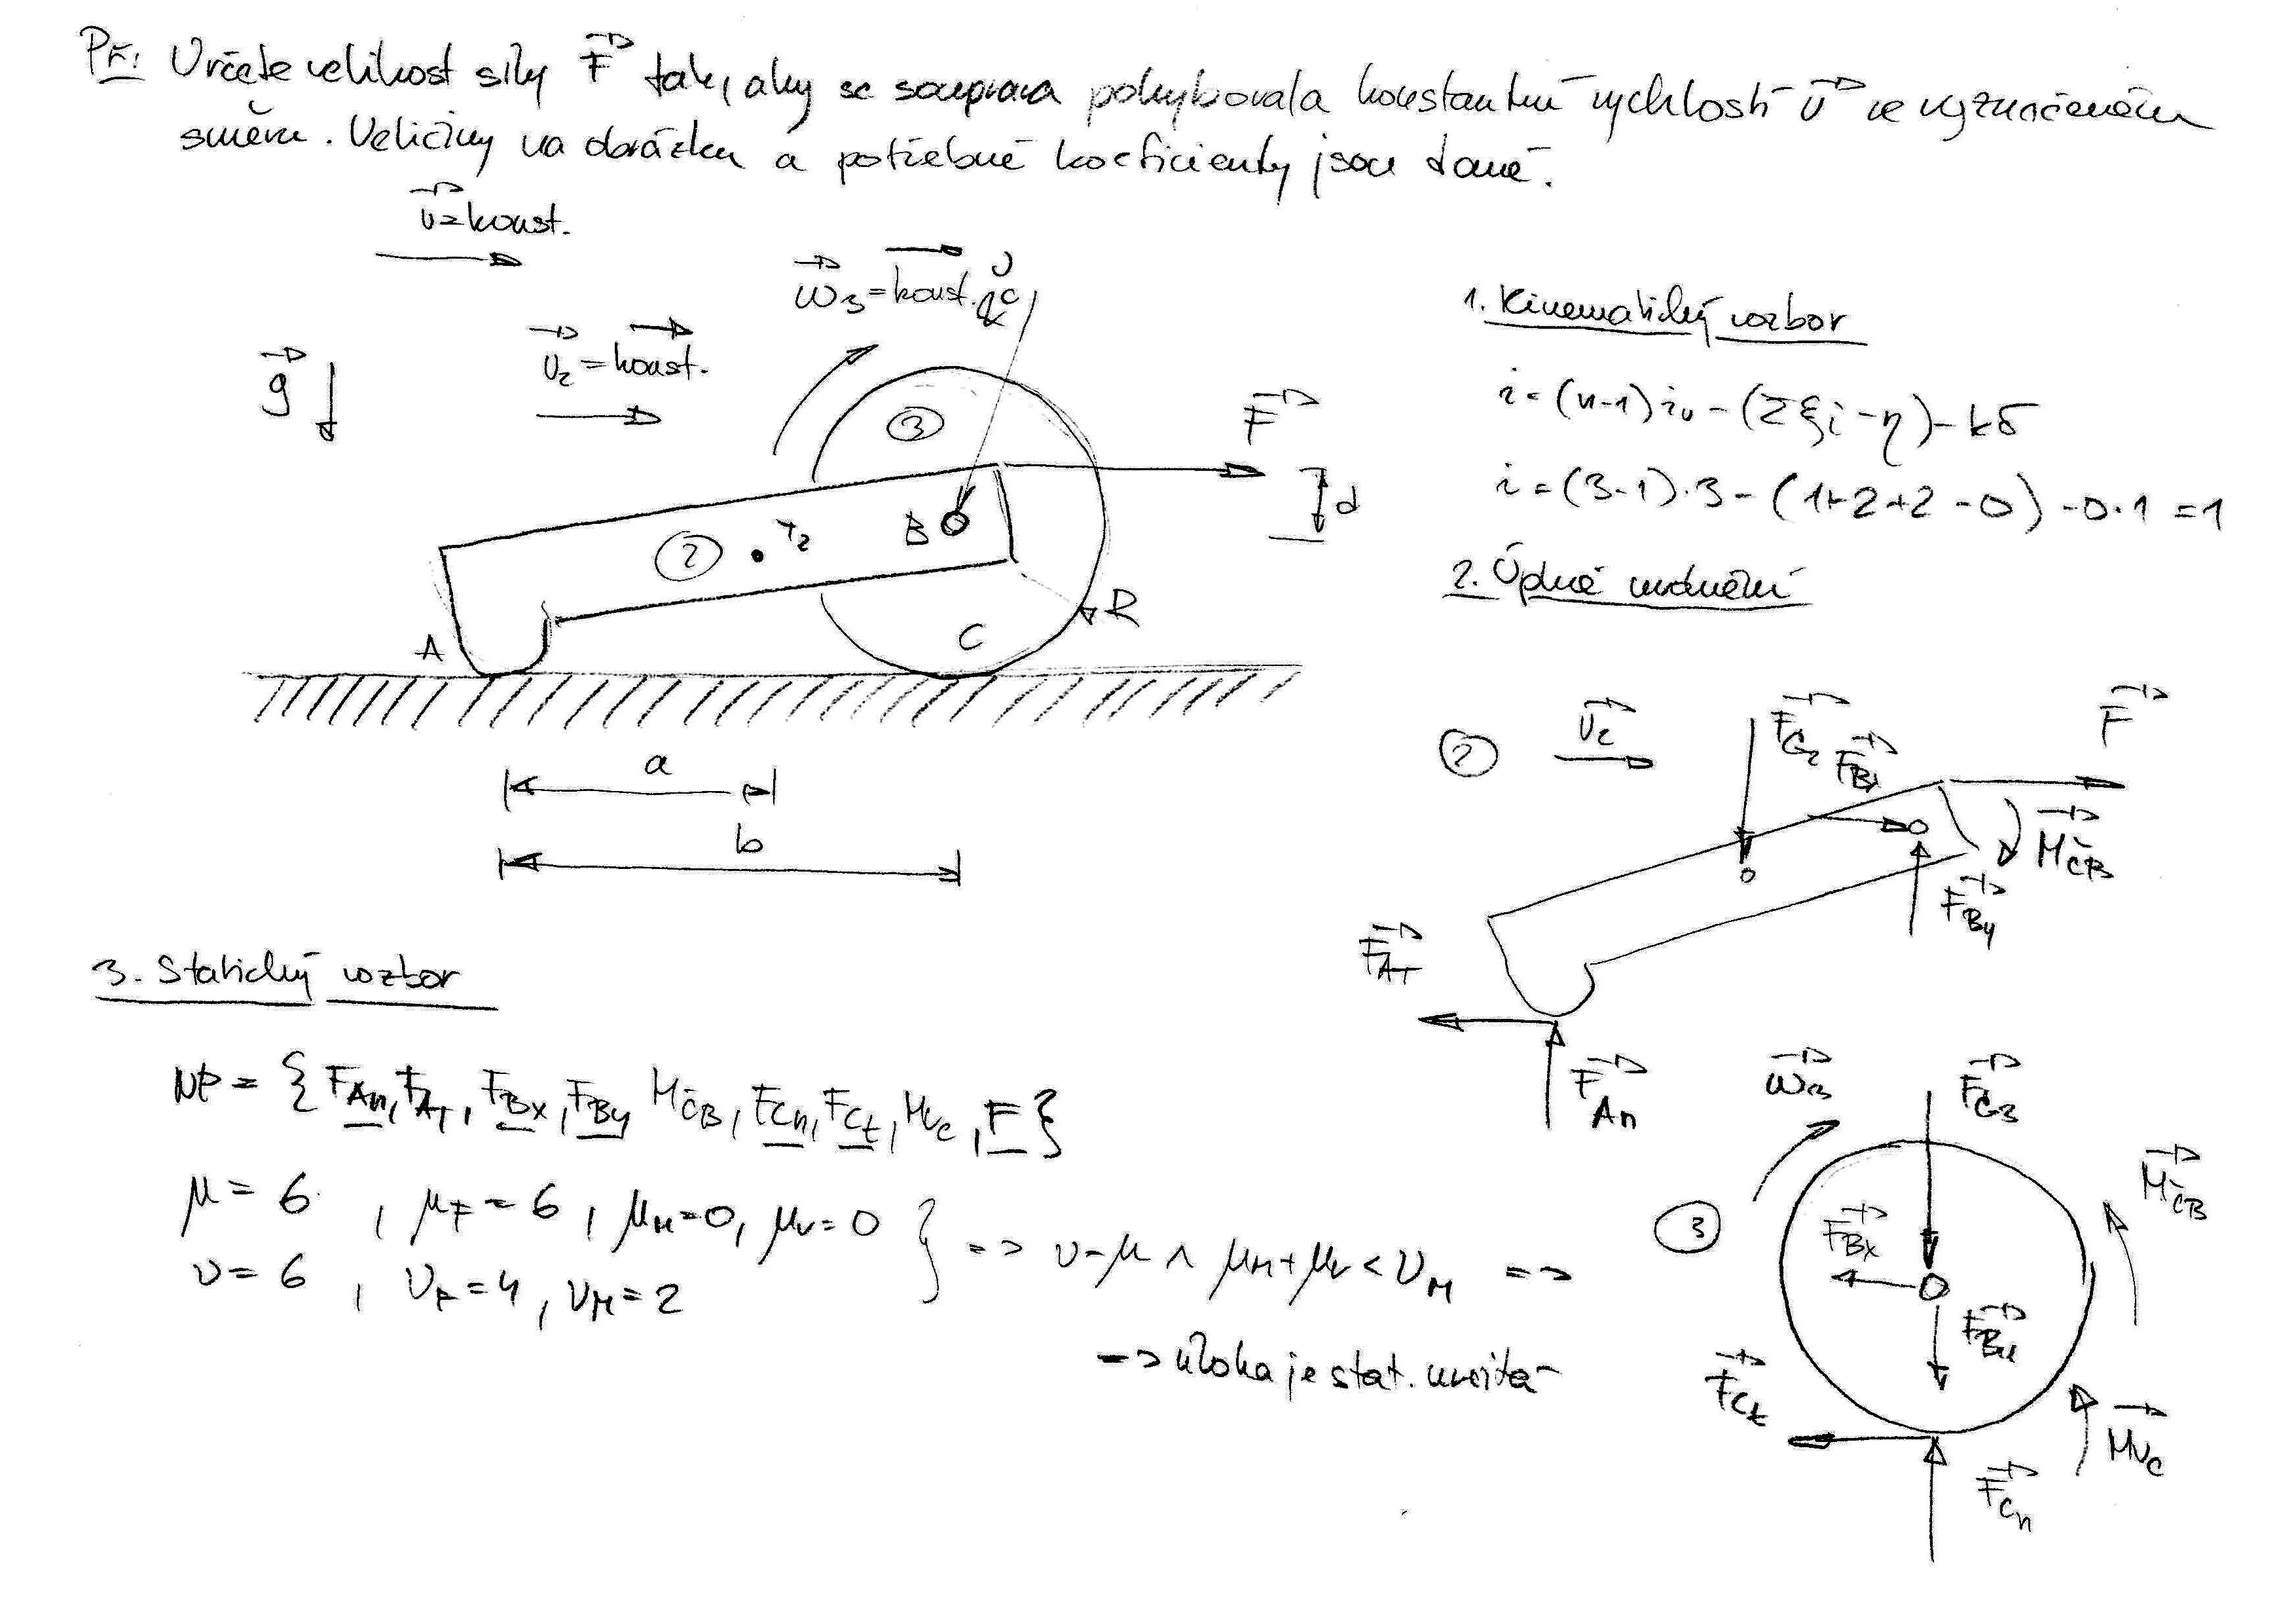 Př: Určete velikost síly F tak, aby se souprava pohybovala konstantní rychlostí v ve vyznačeném
směru. Veličiny na obrázku a potřebné koeficienty jsou dané.
v=konst.
ω3=konst.
v2=konst.
g
rč
③
F
d
B
②
T2
R
A
C
a
b
1. Kinematický rozbor
i=(n-1)iv-(Σξi-η)-kδ
i=(3-1)·3-(1+2+2-0)-0·1=1
2. Úplné uvolnění
②
v2
FG2
FBx
F
MčB
FBy
FAT
FAn
ω3
FG3
③
MčB
FBx
FBy
FCt
MvC
FCn
3. Statický rozbor
NP = {FAn, FAT, FBx, FBy MčB, FCn, FCt, MvC, F}
μ=6, μF=6, μM=0, μr=0
ν=6, νF=4, νM=2
} => ν=μ ∧ μM+μr<νM =>
=> úloha je stat. určitá